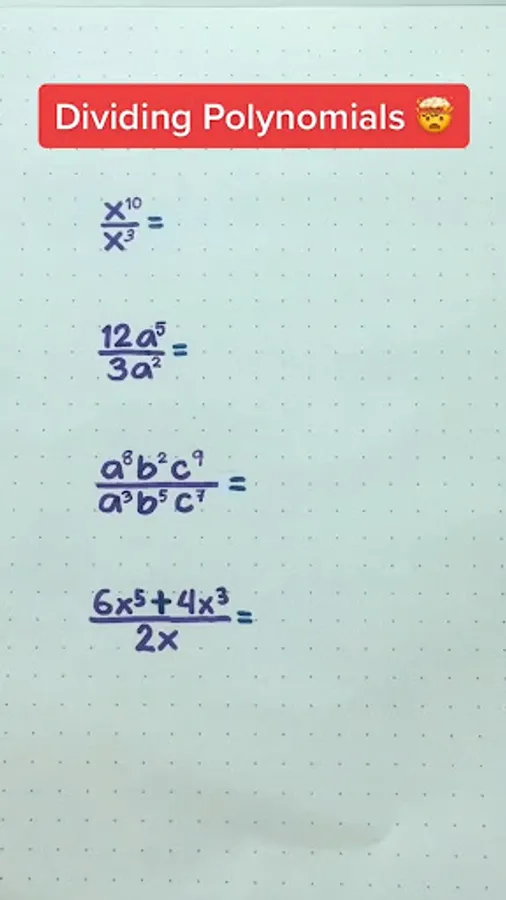 Dividing Polynomials 🤯
x¹⁰/x³ =
12a⁵/3a² =
a⁸b²c⁹/a³b⁵c⁷ =
6x⁵+4x³/2x =